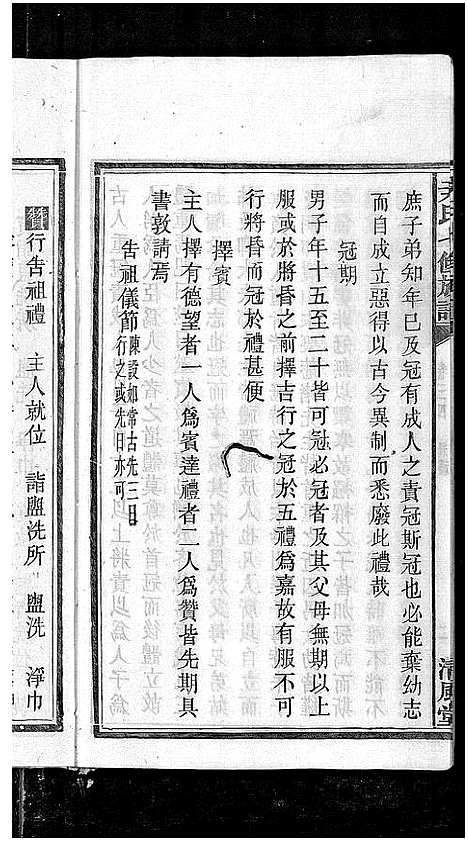 尹氏十修族譜
清風堂
庶子弟知年已及冠有成人之責冠斯冠也必能棄幼志
而自成立惡得以古今異制而悉廢此禮哉
冠期
男子年十五至二十皆可冠必冠者及其父母無期以上
服或於將昏之前擇吉行之冠於五禮爲嘉故有服不可
行將昏而冠於禮甚便
擇賓
主人擇有德望者一人爲賓達禮者二人爲贊皆先期具
書敦請焉
告祖儀節陳設如常古先三日
行之或先一日亦可
贊行告祖禮 主人就位 詣盥洗所 盥洗 淨巾